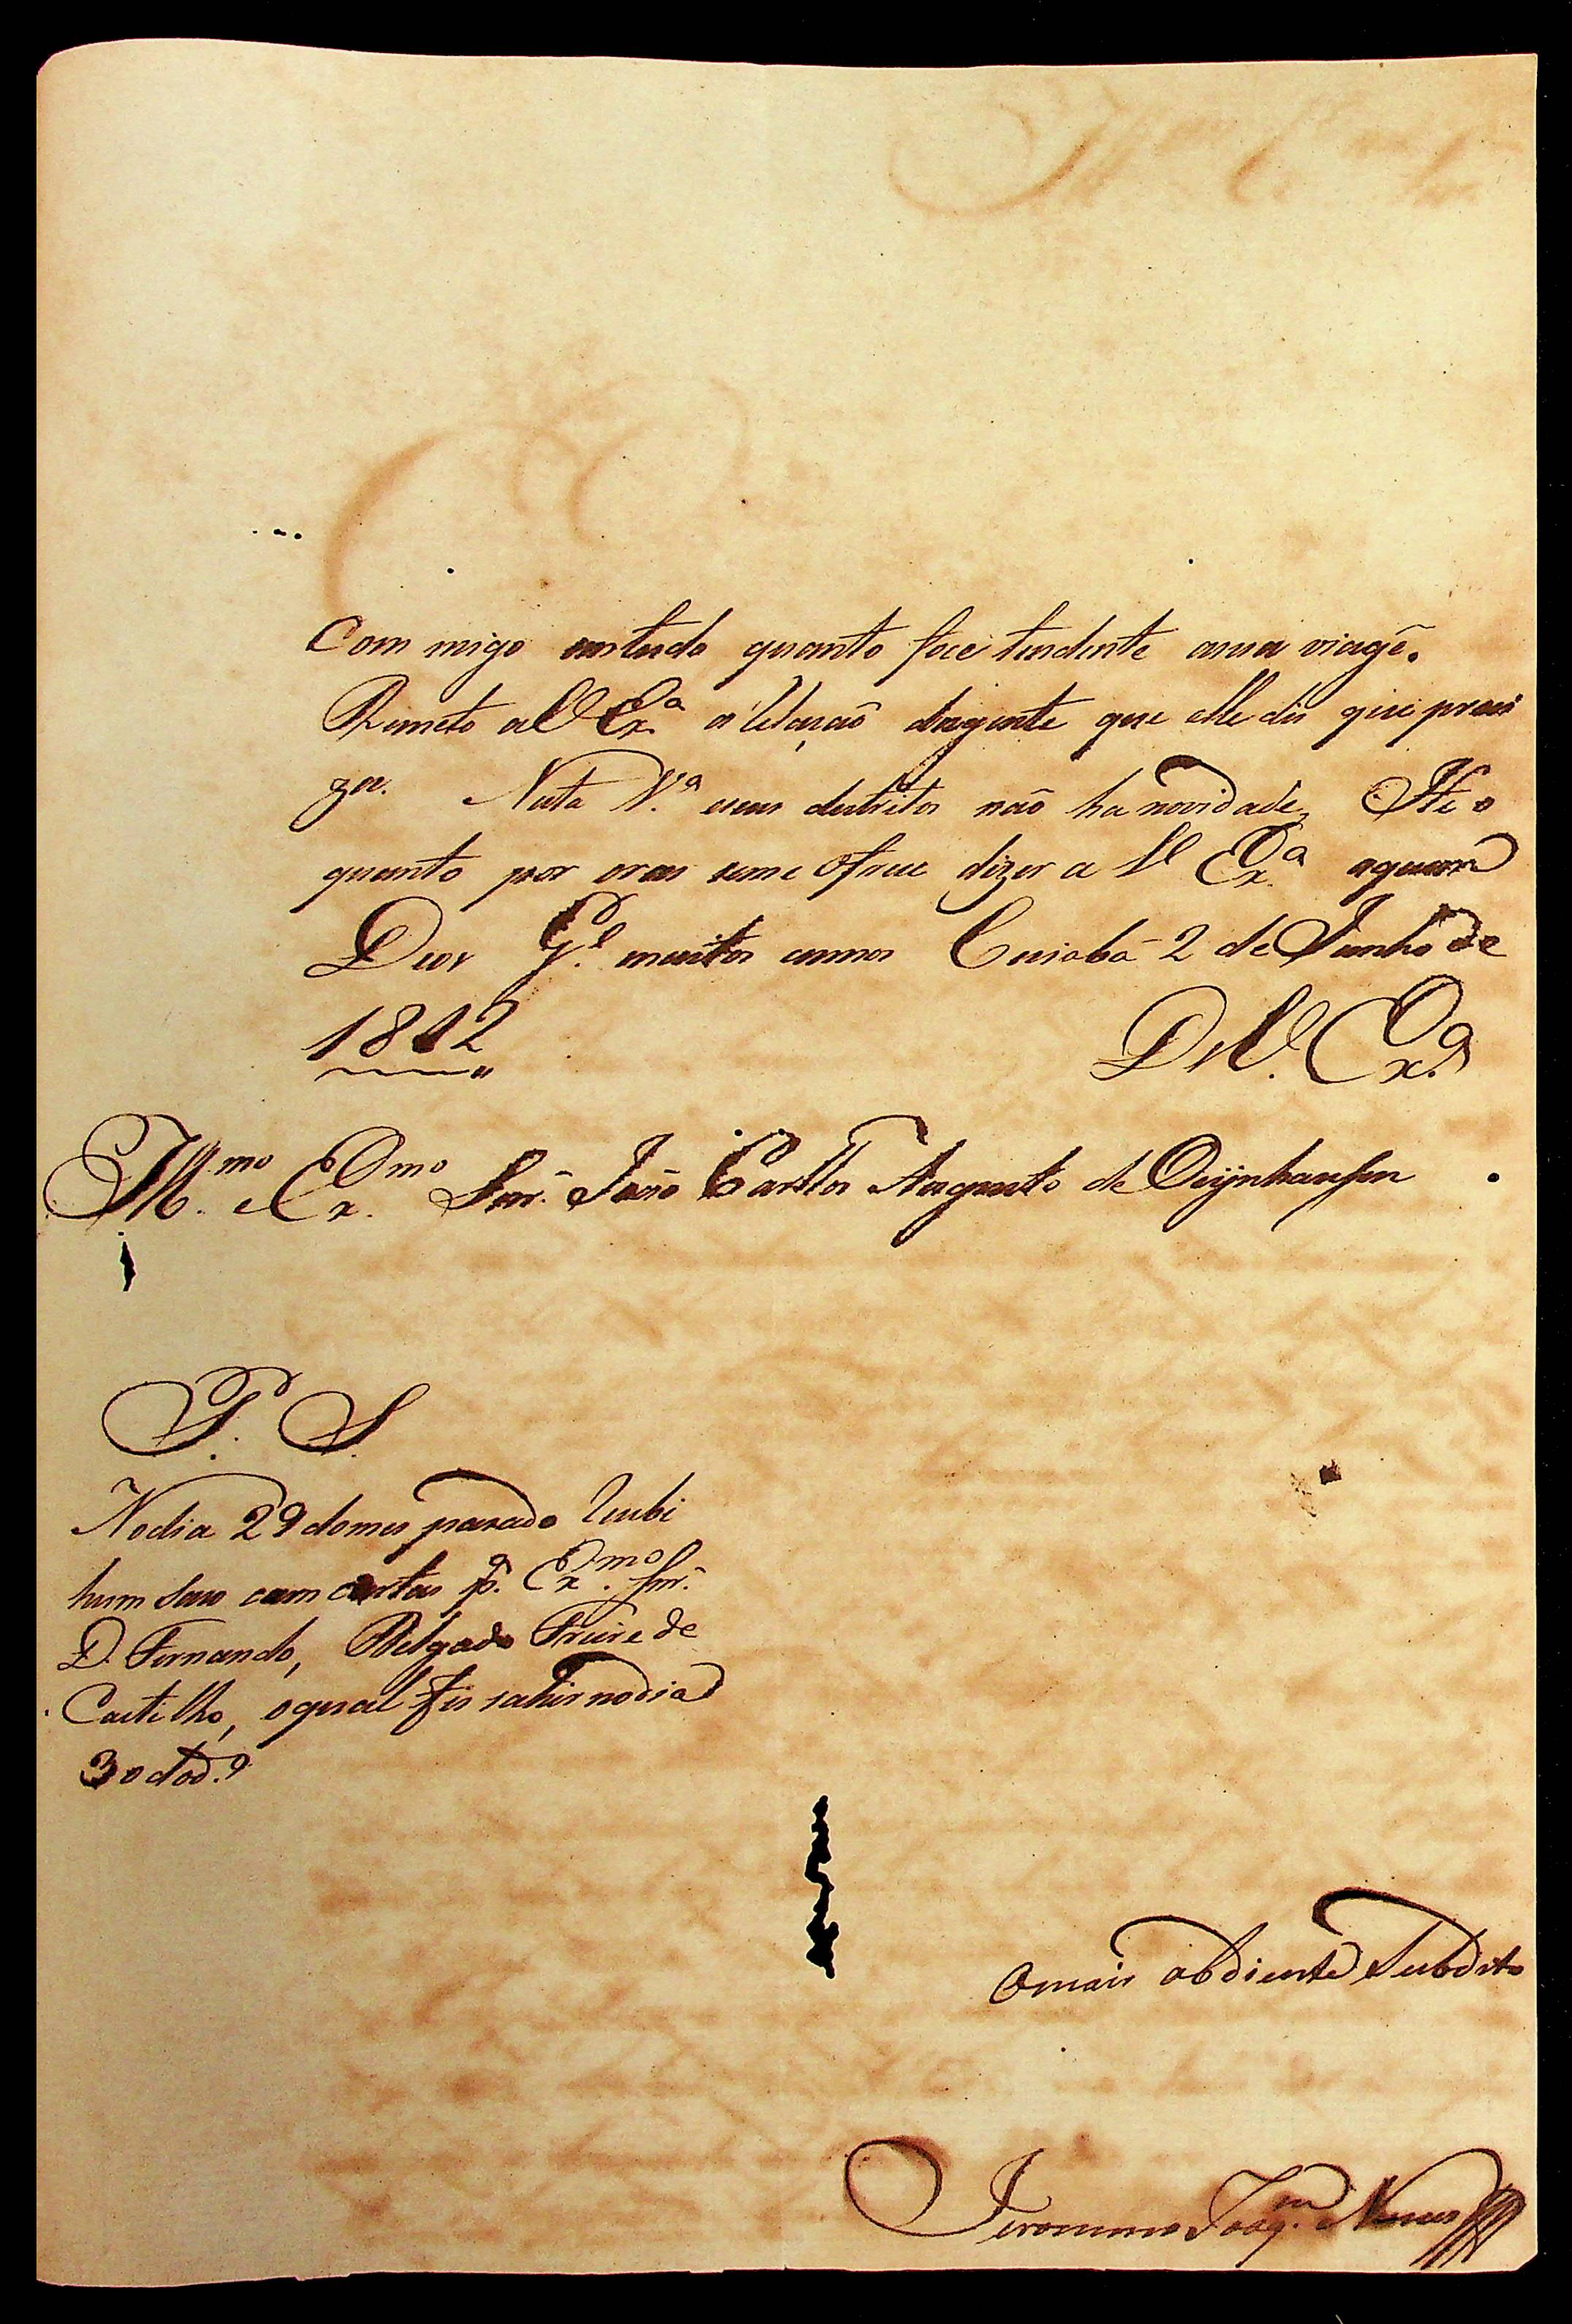 Com migo emtudo quanto fôce tendente asua viagẽ.
Remeto aV Ex.ª a Relação dagente que elle dis que preci
za. Nesta V.ª eseus destritos não ha novidade, He o
quanto por oras seme ofrece dizer a V Ex.ª aquem
Deos G.e muitos annos Cuiabá 2 de Junho de
1812
DeV. Ex.ª
Ill.mo e Ex.mo Snr. João Carllos Augusto de Oeÿnhausen
P. S.
Nodia 29 domes pasado Recebi
hum saco com cartas p.ª Ex.mo Snr.
D. Fernando, Delgado Freire de
Castilho, oqual fis sahir nodia
30 dod.º
Omais obdiente Subdito
Jeronimo Joaq.m Nunes